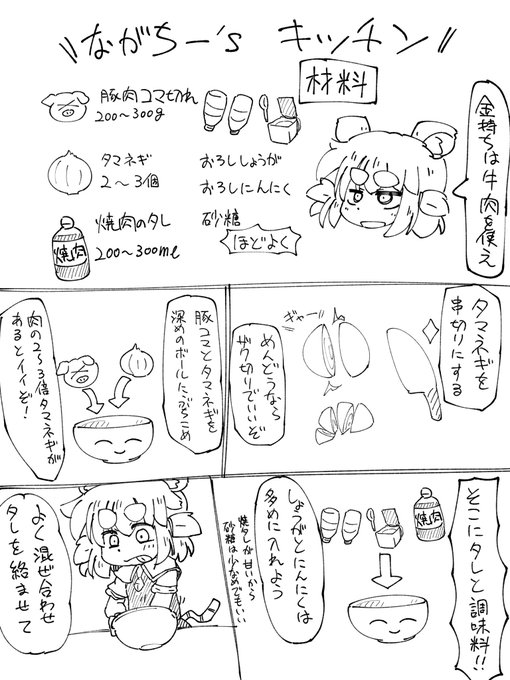 ながちー's キッチン
材料
豚肉コマ切れ
200〜300g
タマネギ
2〜3個
焼肉のタレ
200〜300ml
焼肉
おろししょうが
おろしにんにく
砂糖
ほどよく
金持ちは牛肉を使え
タマネギを
串切りにする
ギャー!!
めんどうなら
ザク切りでいいぞ
豚コマとタマネギを
深めのボールにぶちこめ
肉の2〜3倍タマネギが
あるとイイぞ!
そこにタレと調味料!!
焼肉
しょうがとにんにくは
多めに入れよう
焼タレが甘いから
砂糖は少なめでもいい
よく混ぜ合わせ
タレを絡ませて